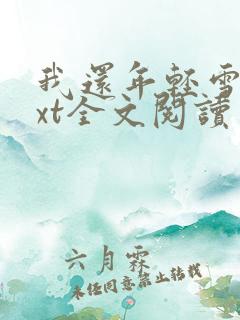 我還年輕雪
xt全文閱讀
六月霖
未经同意禁止转载